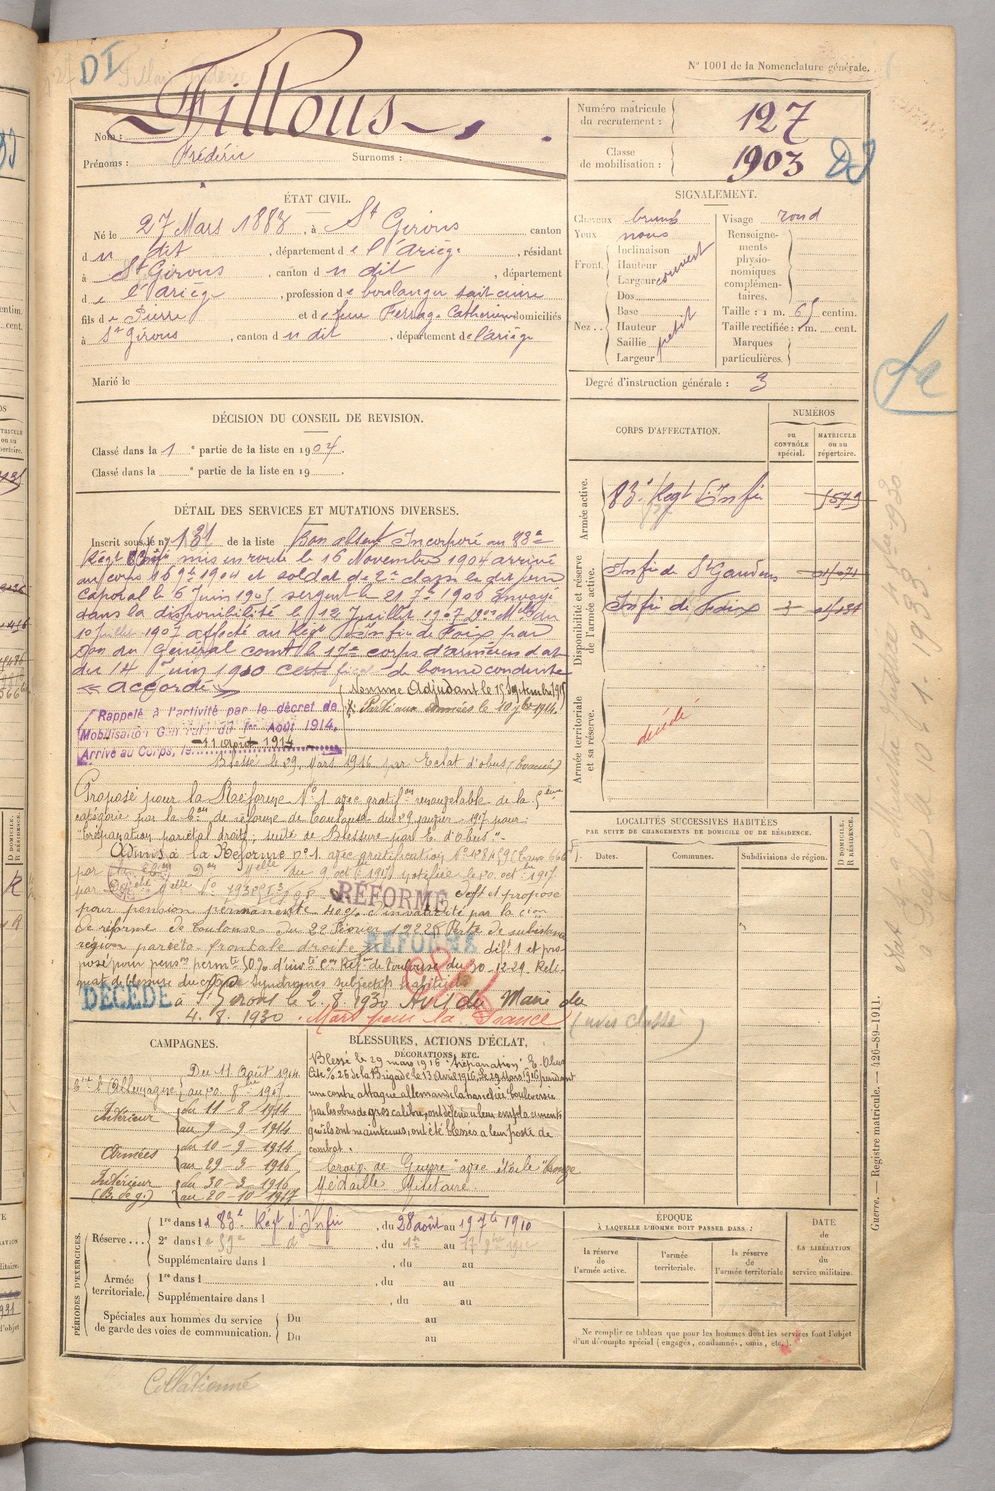 DI
N° 1001 de la Nomenclature générale.
Nom : Fillous
Prénoms : Frédéric Surnoms :
Numéro matricule du recrutement : 127
Classe de mobilisation : 1903
ÉTAT CIVIL.
Né le 27 Mars 1883, à St Girons canton
d u dit, département de l'Ariège, résidant
à St Girons, canton d u dit, département
de l'Ariège, profession de boulanger
fils de Pierre et de feue Catherine domiciliés
à St Girons, canton d u dit, département de l'ariège
Marié le
SIGNALEMENT.
Cheveux bruns Visage rond
Yeux
Front. Inclinaison
Hauteur
Largeur couvert
Nez. Dos
Base
Hauteur
Saillie petit
Largeur
Renseignements physionomiques complémentaires.
Taille : 1 m. 65 centim.
Taille rectifiée : 1m. cent.
Marques particulières.
Degré d'instruction générale : 3
DÉCISION DU CONSEIL DE REVISION.
Classé dans la 1e partie de la liste en 1904.
Classé dans la e partie de la liste en 19
CORPS D'AFFECTATION.
NUMÉROS
AU CONTRÔLE spécial.
MATRICULE ou au répertoire.
Armée active.
83e Regt d'Infie
Disponibilité et réserve de l'armée active.
Infie de St Gaudens
Infie de Foix
Armée territoriale et sa réserve.
décédé
DÉTAIL DES SERVICES ET MUTATIONS DIVERSES.
Inscrit sous le n° 131 de la liste Bon absent Incorporé au 88e
mis en route le 16 Novembre 1904 arrivé
au corps et soldat de 2e classe le dit jour
caporal le 6 Juin 1905 sergent le 21 7bre 1906 envoyé
dans la disponibilité le 12 Juillet 1907
10 juillet 1907 affecté au Régt d'Infie de Foix par
Don du Général comt le 17e corps d'armée en dat
du 14 Juin 1910 certificat de bonne conduite
« accordé »
Nommé Adjudant le 15 Septembre
Parti aux Armées le 10 7bre 1914.
Rappelé à l'activité par le décret de
Mobilisation Générale du 1er Août 1914.
Arrivé au Corps, le 11 Août 1914
Blessé le 29 Mars 1916 par Eclat d'obus (Evacué)
Proposé pour la Réforme N° 1 avec gratifon renouvelable de la 5ème
catégorie par la Con de réforme de Toulouse du 29 janvier 1917 pour:
"trépanation pariétal droite, suite de Blessure par E. d'obus".
Admis à la Réforme n° 1 avec gratification
du 9 oct 1917 notifiée le 20 oct 1917
RÉFORMÉ
et proposé
pour pension permanente 40% d'invalidité par la con
de réforme de Toulouse du 22 Février 1922 Perte de substance
région pariéto frontale droite
RÉFORMÉ
posé pour pensn permte 60% d'invté Con Réfe de Toulouse du 30-12-29.
DÉCÉDÉ à St Girons le 2.8.1930 Avis du Maire du
4.8.1930. Mort pour la France
(avis classé)
LOCALITÉS SUCCESSIVES HABITÉES
PAR SUITE DE CHANGEMENTS DE DOMICILE OU DE RÉSIDENCE.
Dates. Communes. Subdivisions de région. D DOMICILE. R RÉSIDENCE.
CAMPAGNES.
Du 11 Août 1914
Cne c/ l'Allemagne au 20 8bre 1917
Intérieur du 11-8-1914
au 9-9-1914
Armées du 10-9-1914
au 29-3-1916
Intérieur du 30-3-1916
(B. de g.) au 20-10-1917
BLESSURES, ACTIONS D'ÉCLAT,
DÉCORATIONS, ETC.
Blessé le 29 mars 1916 "trépanation" E. Obus
Cité N° 26 de la Brigade le 13 Avril 1916, le 29 Mars 1916 pendant
une contre attaque allemande la tranchée bouleversée
par les obus de gros calibre, ont défendu leur emplacements
qu'ils ont maintenus, ont été blessés à leur poste de
combat.
Croix de Guerre avec étoile bronze
Médaille Militaire
PÉRIODES D'EXERCICES.
Réserve. 1re dans le 83e Regt d'Infie, du 28 août au 19 7bre 1910
2e dans le 59e d°, du 1er au 17
Supplémentaire dans l , du au
Armée territoriale. 1re dans l , du au
Supplémentaire dans l , du au
Spéciales aux hommes du service de garde des voies de communication. Du au
Du au
ÉPOQUE
À LAQUELLE L'HOMME DOIT PASSER DANS :
la réserve de l'armée active.
l'armée territoriale.
la réserve de l'armée territoriale
DATE de LA LIBÉRATION du service militaire.
Ne remplir ce tableau que pour les hommes dont les services font l'objet
d'un décompte spécial (engagés, condamnés, omis, etc.).
Guerre. — Registre matricule. — 426-89-1911.
Collationné